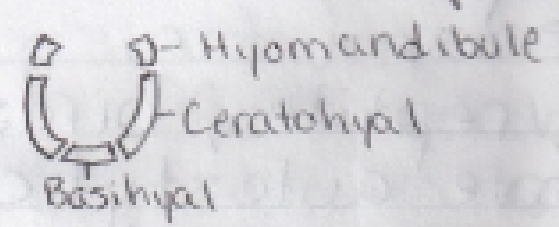 Hyomandibule
Ceratohyal
Basihyal